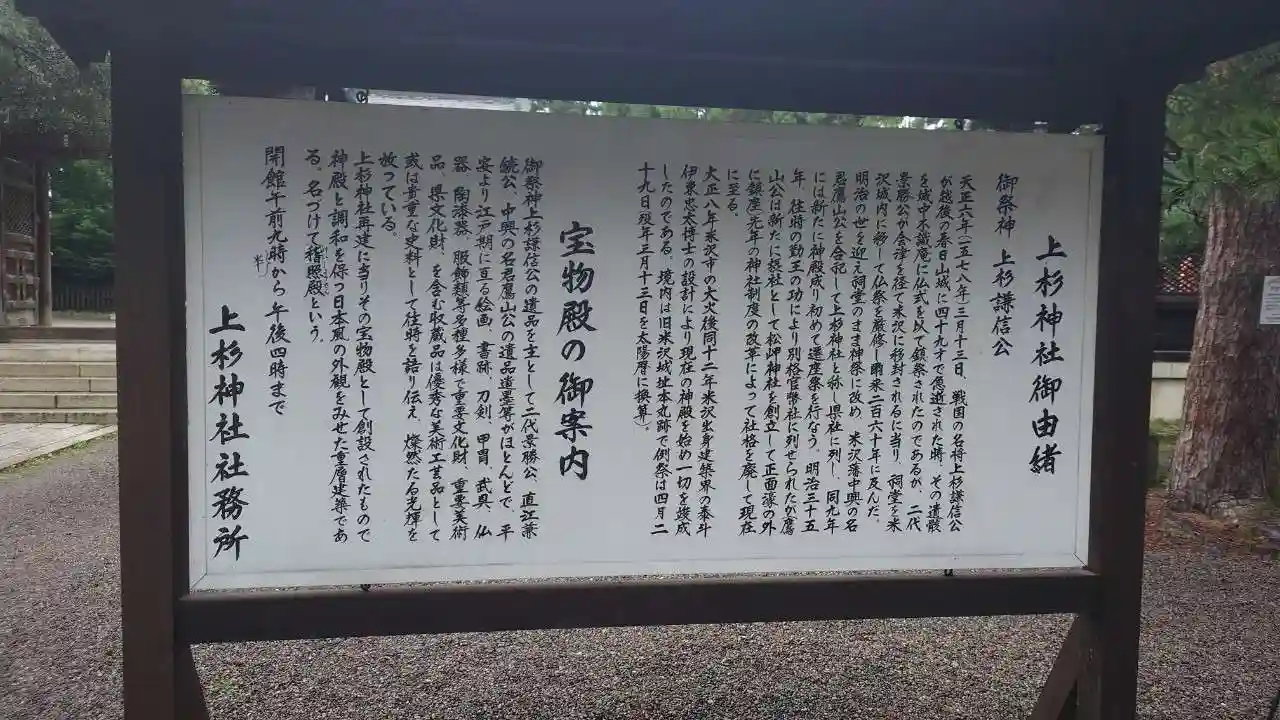 上杉神社御由緒
御祭神 上杉謙信公
天正六年(一五七八年)三月十三日、戦国の名将上杉謙信公
が越後の春日山城に四十九才で急逝された時、その遺骸
を城中不識庵に仏式を以て鎮祭されたのであるが、二代
景勝公が会津を径て米沢に移封されるに当り、祠堂を米
沢城内に移して仏祭を厳修し爾来二百六十年に及んだ。
明治の世を迎え祠堂のまま神祭に改め、米沢藩中興の名
君鷹山公を合祀して上杉神社と称し県社に列し、同九年
には新たに神殿成り初めて遷座祭を行なう。明治三十五
年、往時の勤王の功により別格官幣社に列せられたが鷹
山公は新たに摂社として松岬神社を創立して正面濠の外
に鎮座、先年の神社制度の改革によって社格を廃して現在
に至る。
大正八年米沢市の大火後同十二年米沢出身建築界の泰斗
伊東忠太博士の設計により現在の神殿を始め一切を竣成
したのである。境内は旧米沢城址本丸跡で例祭は四月二
十九日(旧
三月十三日を太陽暦に換算)。
宝物殿の御案内
御祭神上杉謙信公の遺品を主として二代景勝公、直江兼
続公、中興の名君鷹山公の遺品遺墨等がほとんどで、平
安より江戸期に亘る絵画、書跡、刀剣、甲冑、武具、仏
器、陶漆器、服飾類等多種多様で重要文化財、重要美術
品、県文化財、を含む収蔵品は優秀な美術工芸品として
或は貴重な史料として往時を語り伝え、燦然たる光輝を
放っている。
上杉神社再建に当りその宝物殿として創設されたもので
神殿と調和を保つ日本風の外観をみせた重層建築であ
る。名づけて稽照殿という。
開館午前九時から午後四時まで
上杉神社社務所